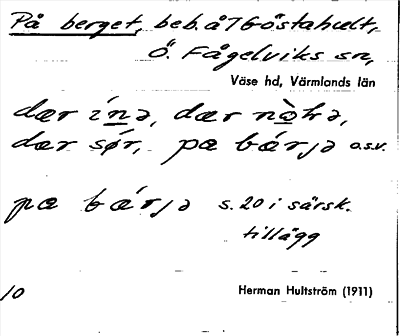 På berget, beb. å 76 östahult,
Ö. Fågelviks sn,
Väse hd, Värmlands län
dær ínə, dær nòhə,
dær sǿr, pæ bǽrjə o.s.v.
pæ bǽrjə s. 20 i särsk.
tillägg
10 Herman Hultström (1911)